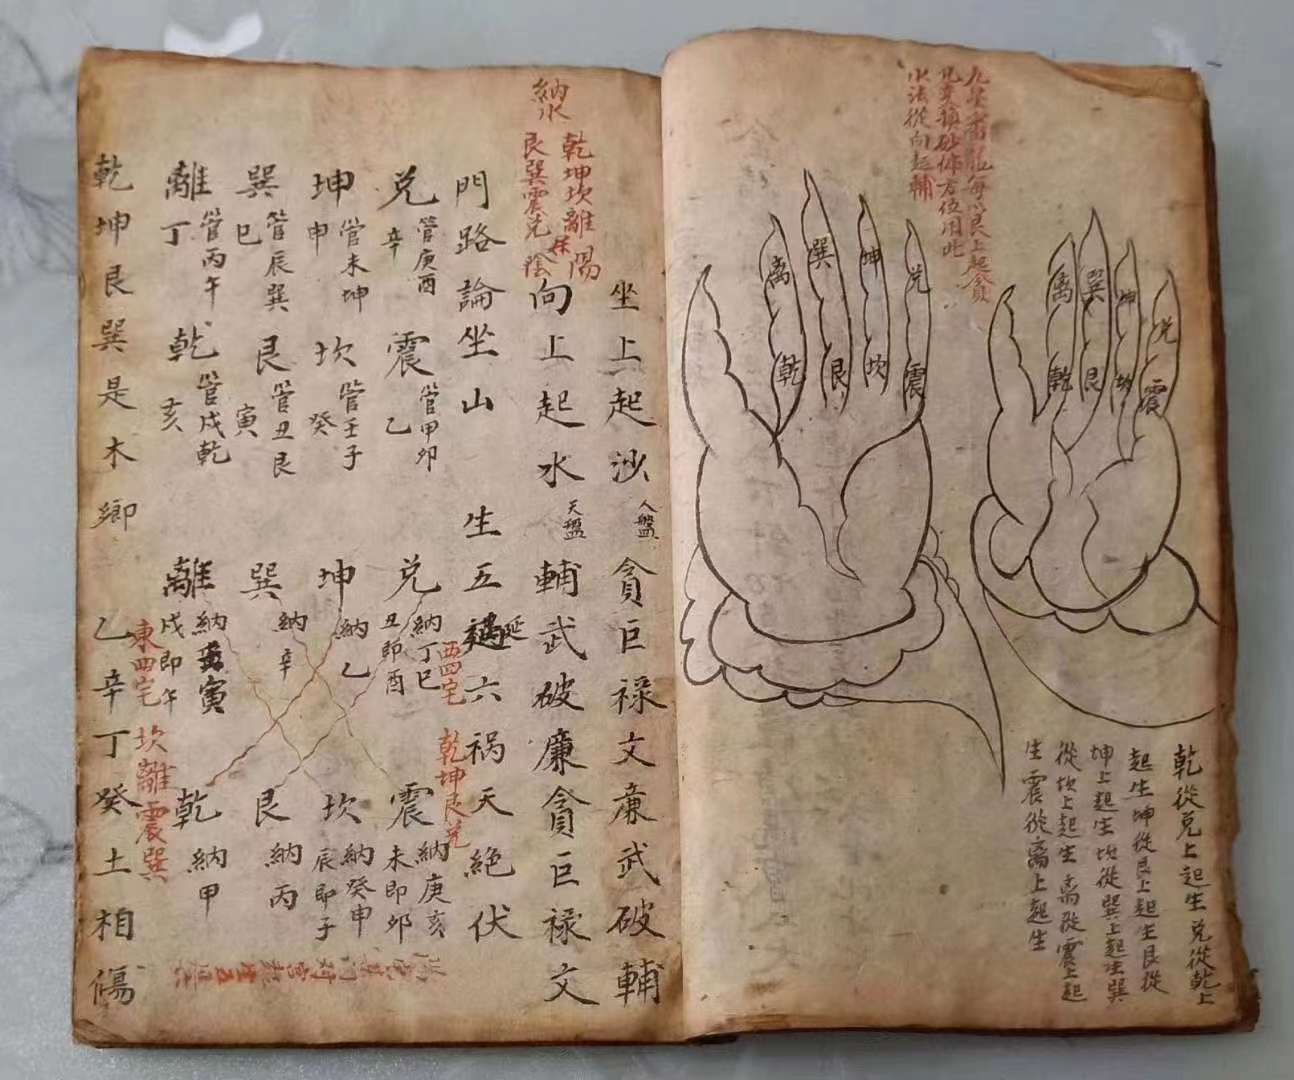 九星
水法從向起輔
兌
震
坤
坎
巽
艮
离
乾
兌
震
坤
坎
巽
艮
离
乾
乾從兌上起生兌從乾上
起生坤從艮上起生艮從
坤上起生坎從巽上起生巽
從坎上起生离從震上起
生震從离上起生
納水
乾坤坎離陽
艮巽震兌陰
坐上起沙人盤貪巨祿文廉武破輔
向上起水天盤輔武破廉貪巨祿文
門路論坐山
生五延六祸天絕伏
兌管庚酉辛
震管甲卯乙
坤管未坤申
坎管壬子癸
巽管辰巽巳
艮管丑艮寅
離管丙午丁
乾管戌乾亥
兌納丁巳丑即酉
震納庚亥未即卯
坤納乙
坎納癸申辰即子
巽納辛
艮納丙
離納壬寅戌即午
乾納甲
西四宅乾坤艮兌
東四宅坎離震巽
乾坤艮巽是木鄉
乙辛丁癸土相傷